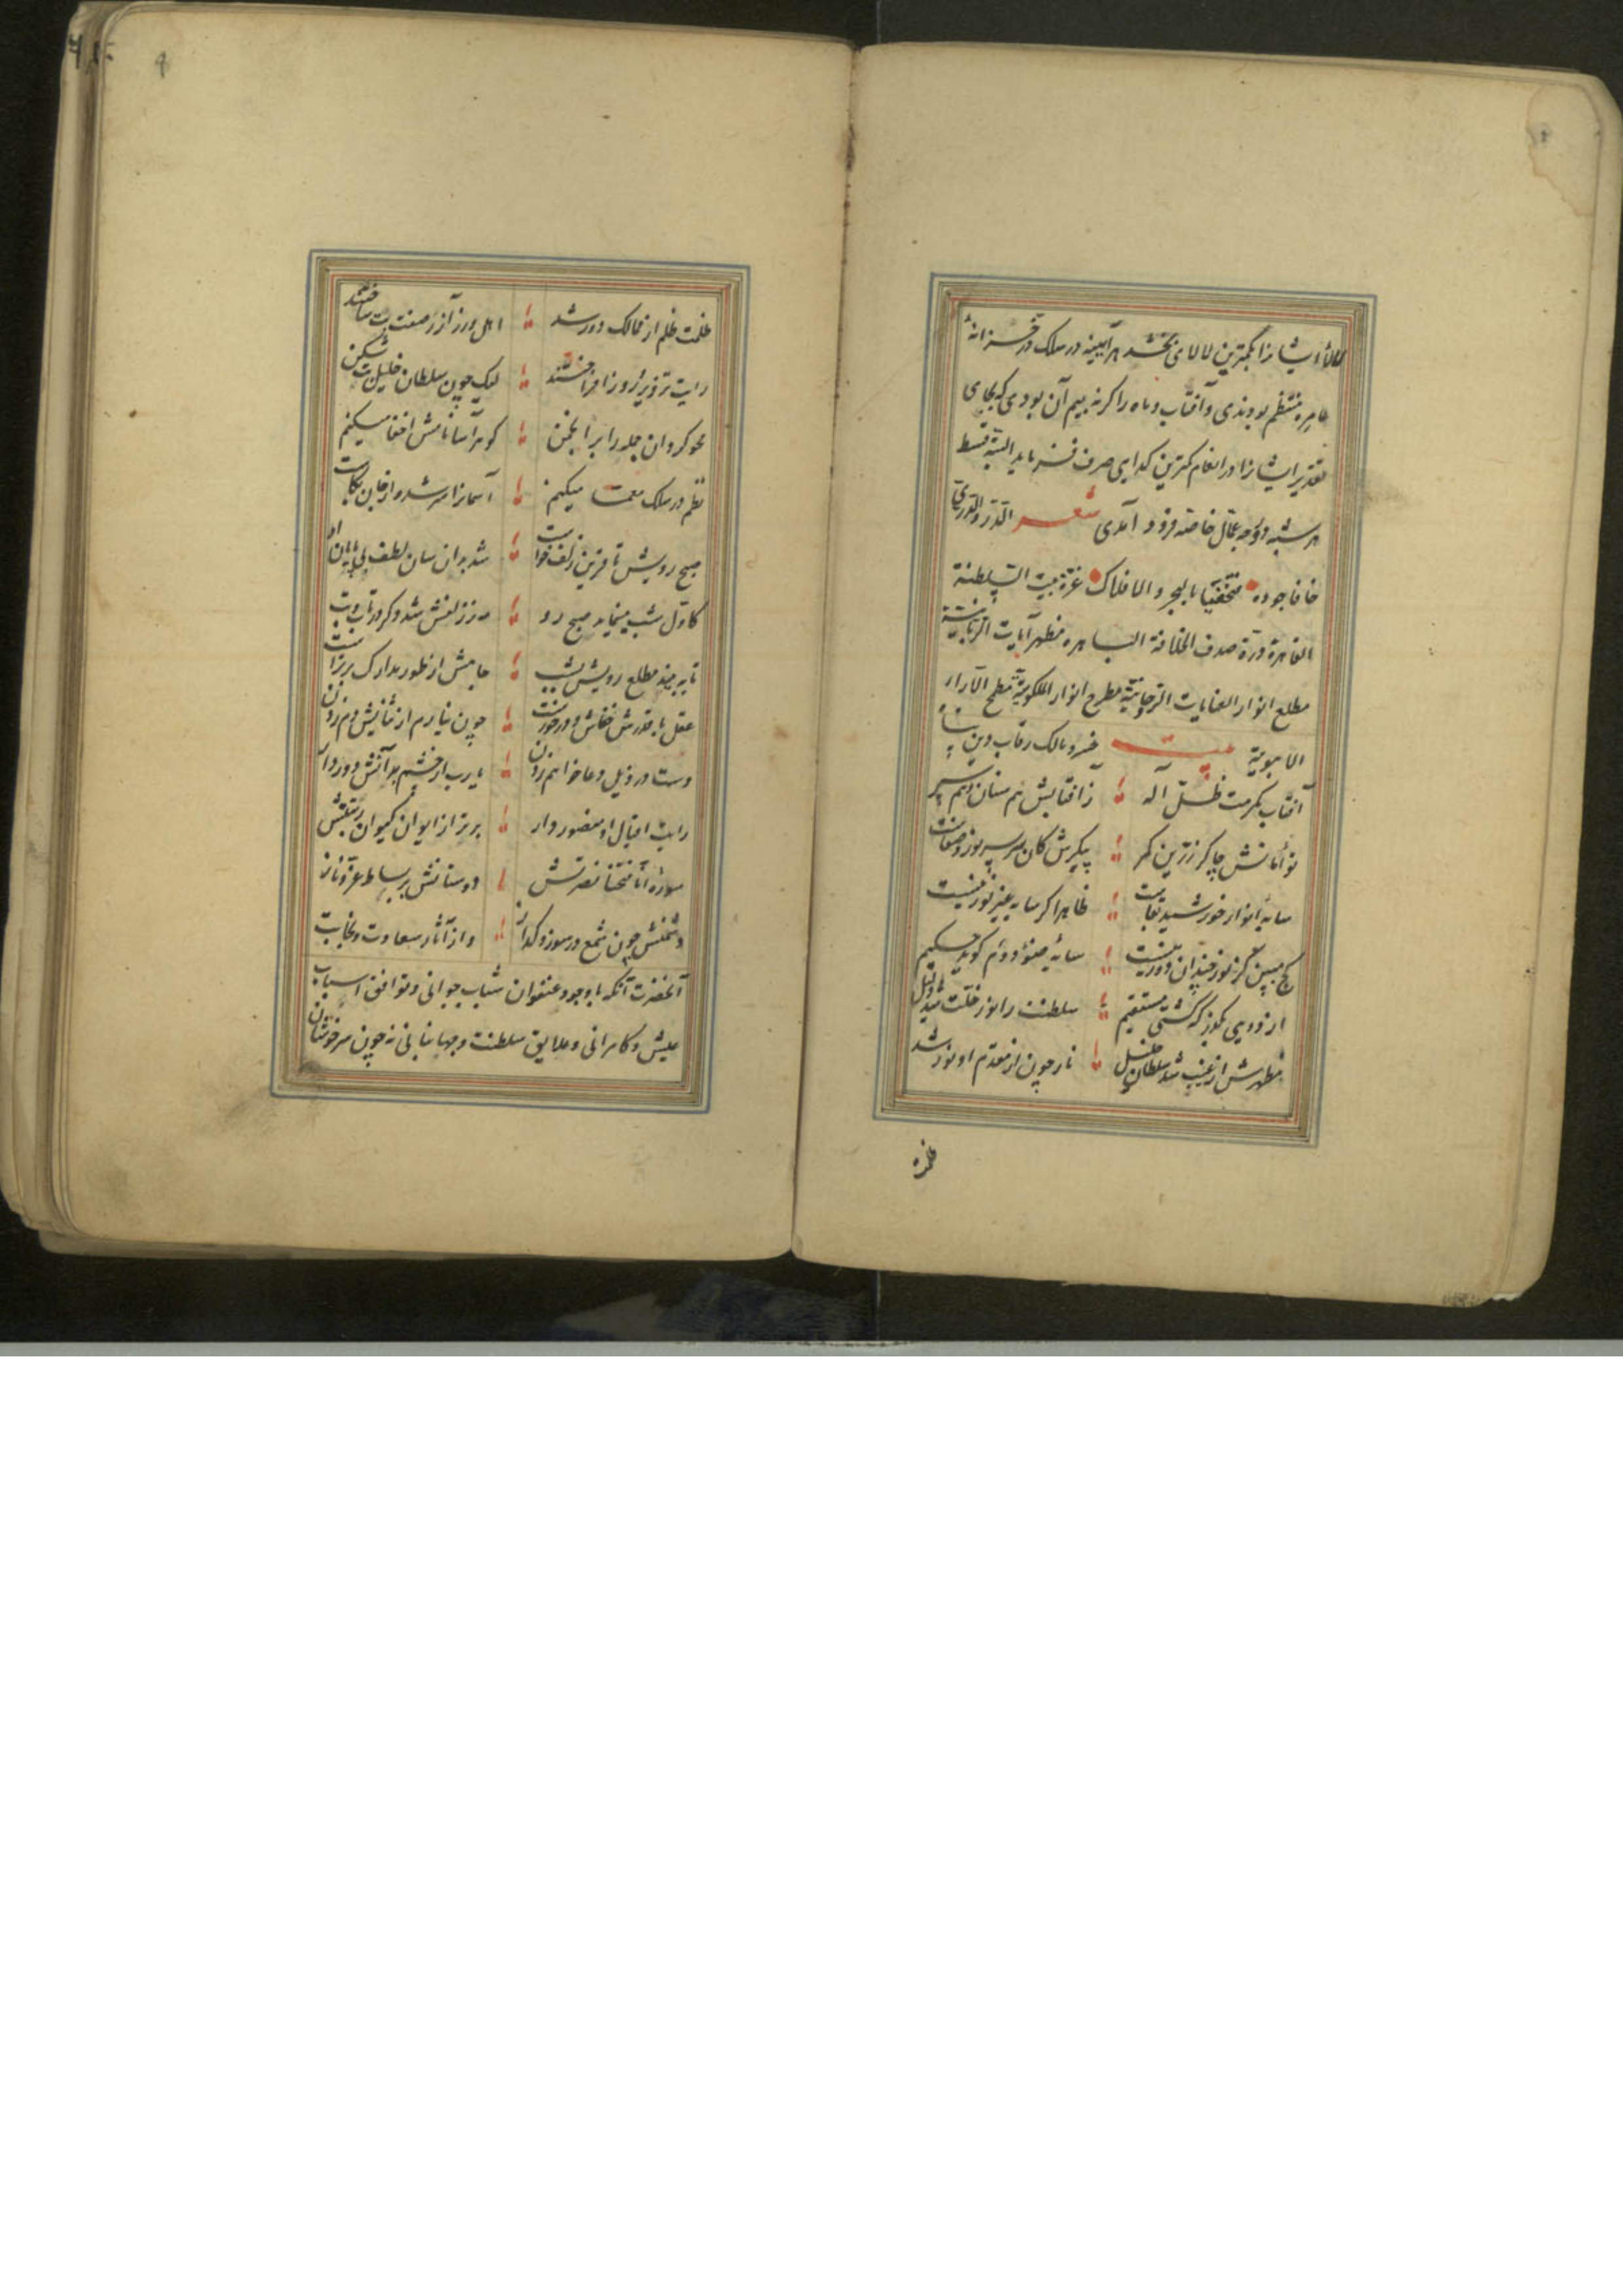 لالاء ایشانرا بکمترین لالای بخشد هر آیینه در سلک در خزانهٔ
عامره منتظم بودندی و آفتاب و ماه را اگر نه بیم آن بودی که بجای
ایشانرا در انعام کمترین کدایی صرف فرماید البته قسط
هر شبه و وجه خاصه فرود آمدی شعر الدر والدری
خافا جوده متخفیا بالبحر والافلاک غرة بیت السلطنة
القاهرة درة صدف الخلافة الباهره مظهر آیات الربانیة
مطلع انوار العنایات الروحانیة مطرح انوار الملکوتیة مطمح
بیت خسرو مالک رقاب دین پناه
آفتاب مکرمت ظل آله زافتابش هم سنان و هم سپر
توأمانش چاکر زرین کمر پیکرش کان سر بسر نور و صفاست
سایهٔ انوار خورشید بقاست ظاهرا کر سایه غیر نور نیست
کج مبین کز نور چندان دور نیست سایه ضوء دوم کوید حکیم
از دویی بکذر که کشتی مستقیم سلطنت را نور خلت شد دلیل
مظهرش از غیب شد سلطان خلیل نار چون از مقدم او نور شد
ظلمت
ظلمت ظلم از ممالک دور شد اهل ورز آزر صفت بت ساختند
رایت تزویر زور افراختند لیک چون سلطان خلیل بت شکن
محو کرد آن جمله را بر انجمن کوهر آسا نامش اخفا میکنم
نظم در سلک معما میکنم آسمانرا سر شد و از جان بکاست
صبح رویش تا قرین زلف خواست شد بدان سان لطف بی پایان او
کاول شب مینماید صبح رو
تا به بیند مطلع رویش بشب جامش از طور مدارک برتر است
عقل با قدرش خفاش و در خورست چون نیارم از ثنایش دم زدن
دست در ذیل دعا خواهم زدن یارب از چشم بد آتش دور دار
رایت اقبال او منصور دار برتر از ایوان کیوان رتبتش
سوره انا فتحنا نصرتش دوستانش بر بساط عز و ناز
دشمنش چون شمع در سوز و کداز و از آثار سعادت و نجابت
آنحضرت آنکه باوجود عنفوان شباب جوانی و توافق اسباب
عیش و کامرانی و علایق سلطنت و جهانبانی نه چون سرخوشان